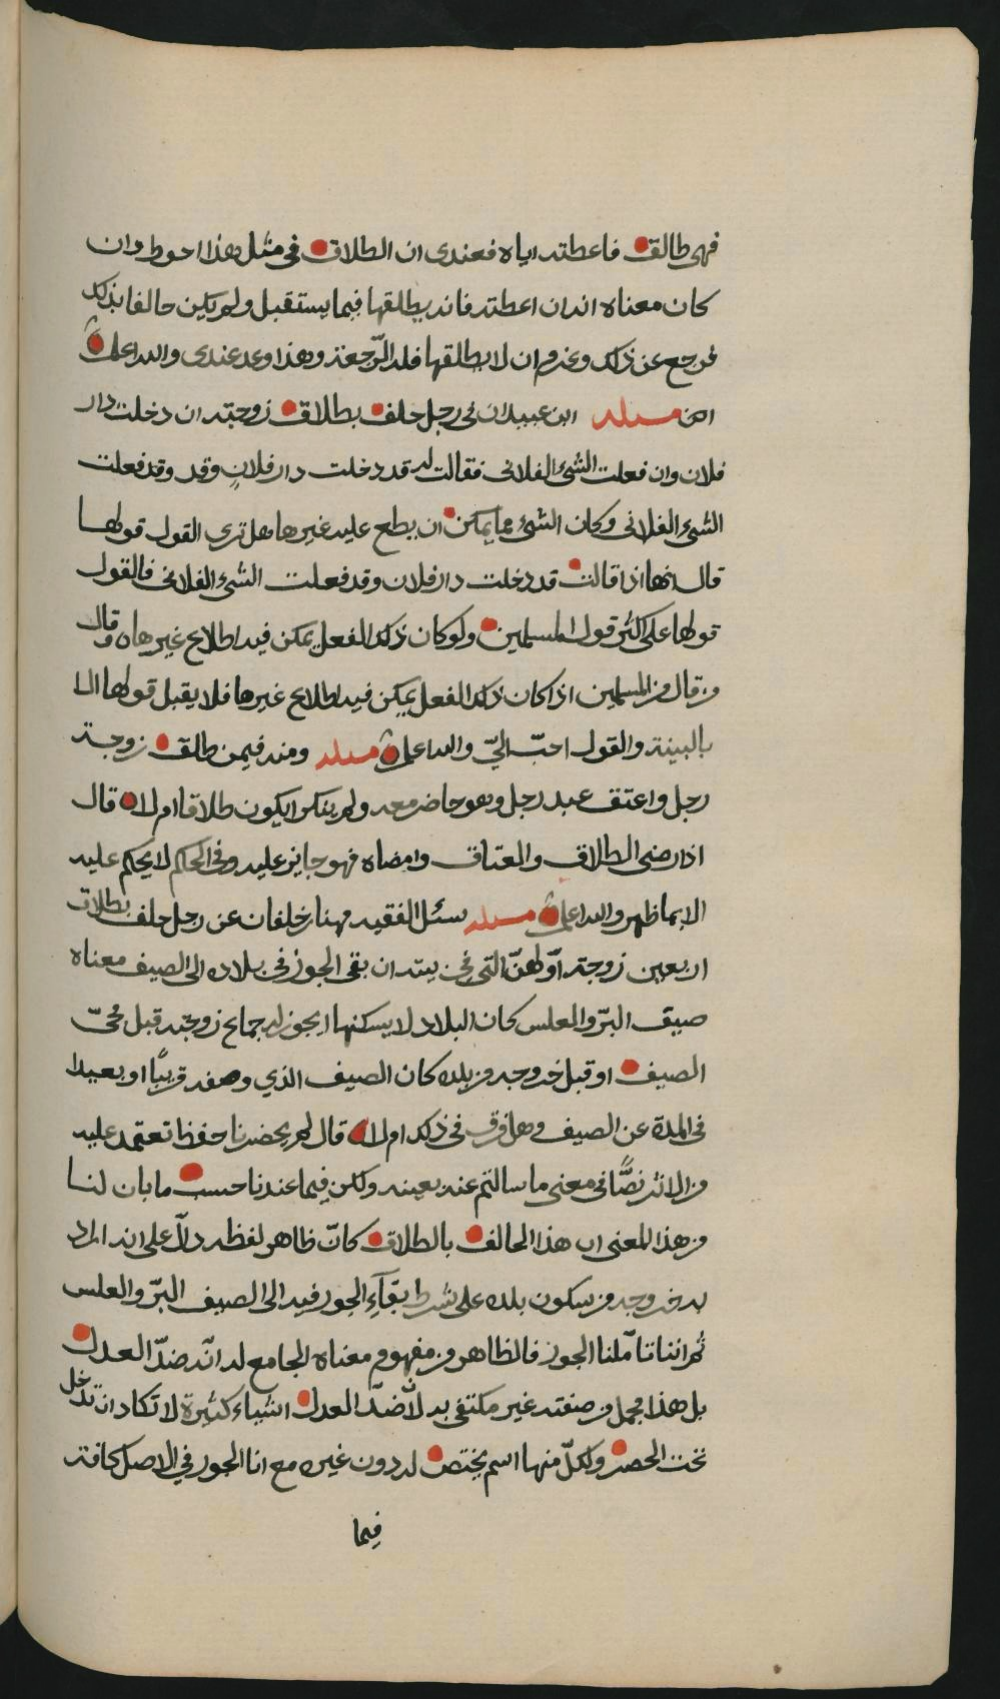 فهي طالق فاعطته اياه فعندي ان الطلاق في مثل هذا احوط وان
كان معناه انه ان اعطته فانه يطلقها فيما يستقبل ولم يكن حالفا بذلك
فرجع عن ذلك وعزم ان لا يطلقها فله الرّجعة وهذا وعد عندي والله اعلم
مسئلة ابن عبيدان في رجل حلف بطلاق زوجته ان دخلت دار
فلان وان فعلت الشيء الفلاني فقالت له قد دخلت دار فلانٍ وقد وقد فعلت
الشيء الفلاني وكان الشيء مما يمكن ان يطلع عليه غيرها هل ترى القول قولها
قال انها اذا قالت قد دخلت دار فلان وقد فعلت الشيء الفلاني فالقول
قولها على اكثر قول المسلمين ولو كان ذلك الفعل يمكن فيه اطلاع غيرها وقال
من قال من المسلمين اذا كان ذلك الفعل يمكن فيه اطلاع غيرها فلا يقبل قولها الا
بالبينة والقول احبّ اليّ والله اعلم مسئلة ومنه فيمن طلق زوجة
رجل واعتق عبد رجل وهو حاضر معه ولم ينكر ايكون طلاقا ام لا قال
اذا رضي الطلاق والعتاق وامضاه فهو جايز عليه وفي الحكم لا يحكم عليه
الا بما ظهر والله اعلم مسئلة سئل الفقيه مهنا بن خلفان عن رجل حلف بطلاق
اربعين زوجته اوّلهنّ التي في بيته ان بقى الجور في بلاده الى الصيف معناه
صيف البرّ والعلس كان البلاد لا يسكنها ايجوز له جماع زوجته قبل مجيّ
الصيف او قبل خروجه من بلده كان الصيف الذي وصفه قريبًا او بعيدا
في المدة عن الصيف وهل فرق في ذلك ام لا قال لم يحضرنا حفظ نعتمد عليه
من الاثر نصًّا في معنى ما سالتم عنه بعينه ولكن فيما عندنا حسب ما بان لنا
من هذا المعنى ان هذا الحالف بالطلاق كانّ ظاهر لفظه دلّا على انه اراد
به خروجه من سكون بلده على شرط بقآء الجور فيه الى الصيف البرّ والعلس
ثم اننا تامّلنا الجور فالظاهر من مفهوم معناه الجامع له انّه ضدّ العدل
بل هذا مجمل من صفته غير مكتفى به لانّ ضدّ العدل اشياء كثيرة لا تكاد ان تدخل
تحت الحصر ولكلّ منها اسم يختص له دون غيره مع انا الجور في الاصل كافة
فيما